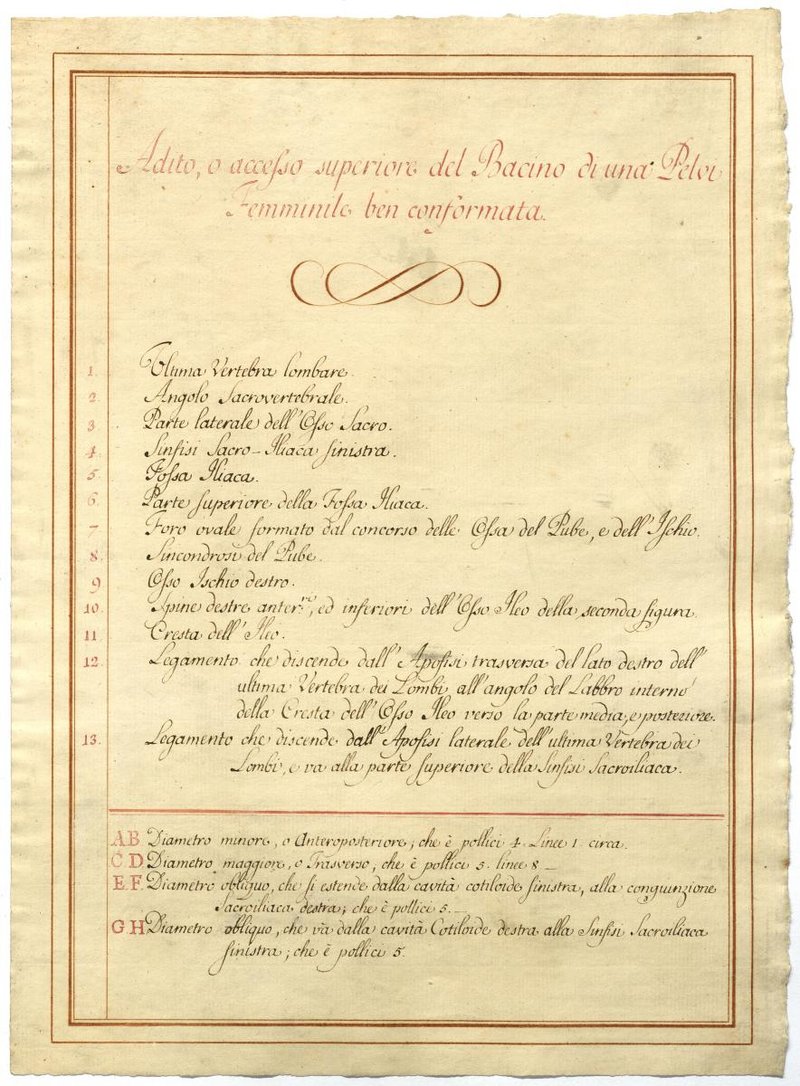 Adito, o accesso superiore del Bacino di una Pelvi
Femminile ben conformata.
1. Ultima Vertebra lombare.
2 Angolo Sacrovertebrale.
3 Parte laterale dell'Osso Sacro.
4. Sinfisi Sacro-Iliaca sinistra.
5. Fossa Iliaca.
6. Parte superiore della Fossa Iliaca.
7 Foro ovale formato dal concorso delle Ossa del Pube, e dell'Ischio.
8. Sincondrosi del Pube.
9 Osso Ischio destro.
10. Spine destre anter.re, ed inferiori dell'Osso Ileo della seconda figura.
11 Cresta dell'Ileo.
12. Legamento che discende dall'Apofisi trasversa del lato destro dell'
ultima Vertebra dei Lombi, all'angolo del Labbro interno
della Cresta dell'Osso Ileo verso la parte media, e posteriore.
13. Legamento che discende dall'Apofisi laterale dell'ultima Vertebra dei
Lombi, e va alla parte superiore della Sinfisi Sacroiliaca.
AB Diametro minore, o Anteroposteriore, che è pollici 4. Linee 1 circa.
C.D Diametro maggiore, o Trasverso, che è pollici 5. linee 8 _
E.F. Diametro obliquo, che si estende dalla cavità cotiloide sinistra, alla congiunzione
Sacroiliaca destra; che è pollici 5. _
G.H Diametro obliquo, che và dalla cavità Cotiloide destra alla Sinfisi Sacroiliaca
sinistra; che è pollici 5.